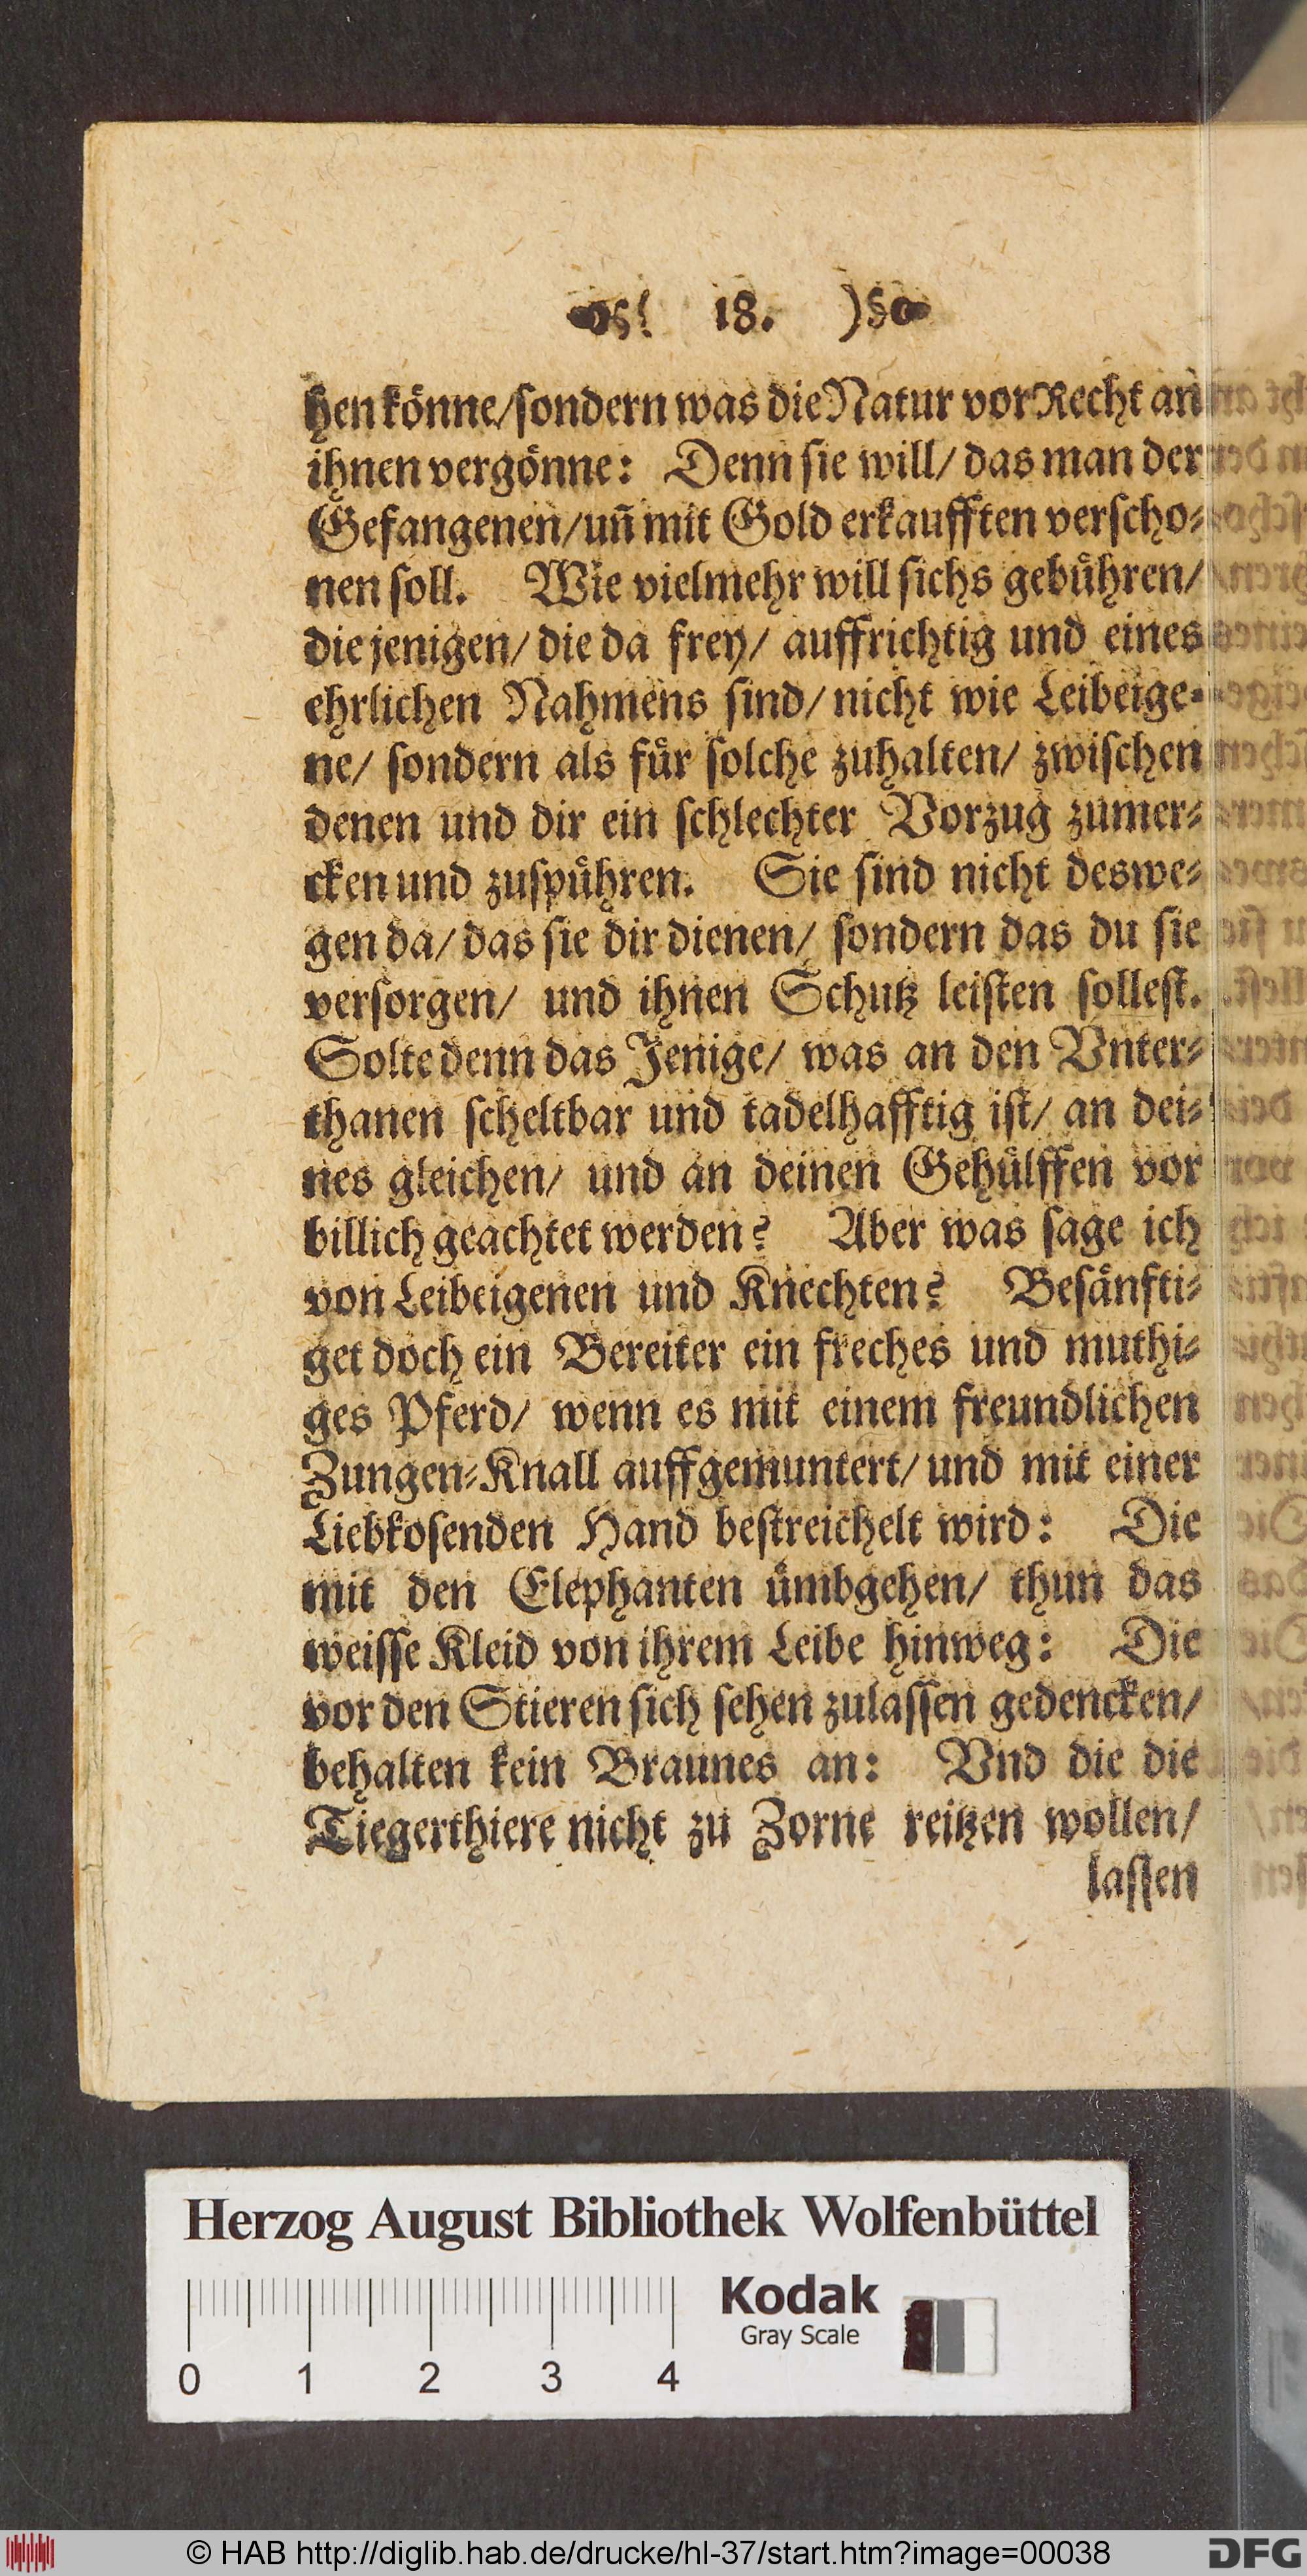 18.
hen könne/sondern was die Natur vor Recht an
ihnen vergönne: Denn sie will/ das man der
Gefangenen/un̄ mit Gold erkaufften verscho⸗
nen soll. Wie vielmehr will sichs gebühren/
die jenigen/ die da frey/ auffrichtig und eines
ehrlichen Nahmens sind/ nicht wie Leibeige⸗
ne/ sondern als für solche zuhalten/ zwischen
denen und dir ein schlechter Vorzug zumer⸗
cken und zuspühren. Sie sind nicht deswe⸗
gen da/ das sie dir dienen/ sondern das du sie
versorgen/ und ihnen Schutz leisten sollest.
Solte denn das Jenige/ was an den Vnter⸗
thanen scheltbar und tadelhafftig ist/ an dei⸗
nes gleichen/ und an deinen Gehülffen vor
billich geachtet werden? Aber was sage ich
von Leibeigenen und Knechten? Besänfti⸗
get doch ein Bereiter ein freches und muthi⸗
ges Pferd/ wenn es mit einem freundlichen
Zungen⸗Knall auffgemuntert/ und mit einer
Liebkosenden Hand bestreichelt wird: Die
mit den Elephanten ümbgehen/ thun das
weisse Kleid von ihrem Leibe hinweg: Die
vor den Stieren sich sehen zulassen gedencken/
behalten kein Braunes an: Vnd die die
Tiegerthiere nicht zu Zorne reitzen wollen/
lassen
Herzog August Bibliothek Wolfenbüttel
Kodak
Gray Scale
0 1 2 3 4
© HAB http://diglib.hab.de/drucke/hl-37/start.htm?image=00038
DFG